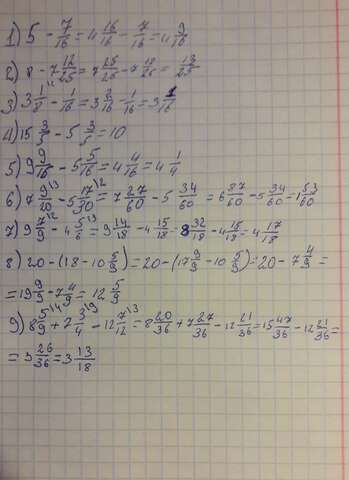 1) 5 - 7/16 = 4 16/16 - 7/16 = 4 9/16
2) 8 - 7 12/25 = 7 25/25 - 7 12/25 = 13/25
3) 3 1/8 - 1/16 = 3 2/16 - 1/16 = 3 1/16
4) 15 3/5 - 5 3/5 = 10
5) 9 9/16 - 5 5/16 = 4 4/16 = 4 1/4
6) 7 9/20 - 5 17/30 = 7 27/60 - 5 34/60 = 6 87/60 - 5 34/60 = 1 53/60
7) 9 7/9 - 4 5/6 = 9 14/18 - 4 15/18 = 8 32/18 - 4 15/18 = 4 17/18
8) 20 - (18 - 10 5/9) = 20 - (17 9/9 - 10 5/9) = 20 - 7 4/9 =
= 19 9/9 - 7 4/9 = 12 5/9
9) 8 5/9 + 2 3/4 - 12 7/12 = 8 20/36 + 7 27/36 - 12 21/36 = 15 47/36 - 12 21/36 =
= 3 26/36 = 3 13/18